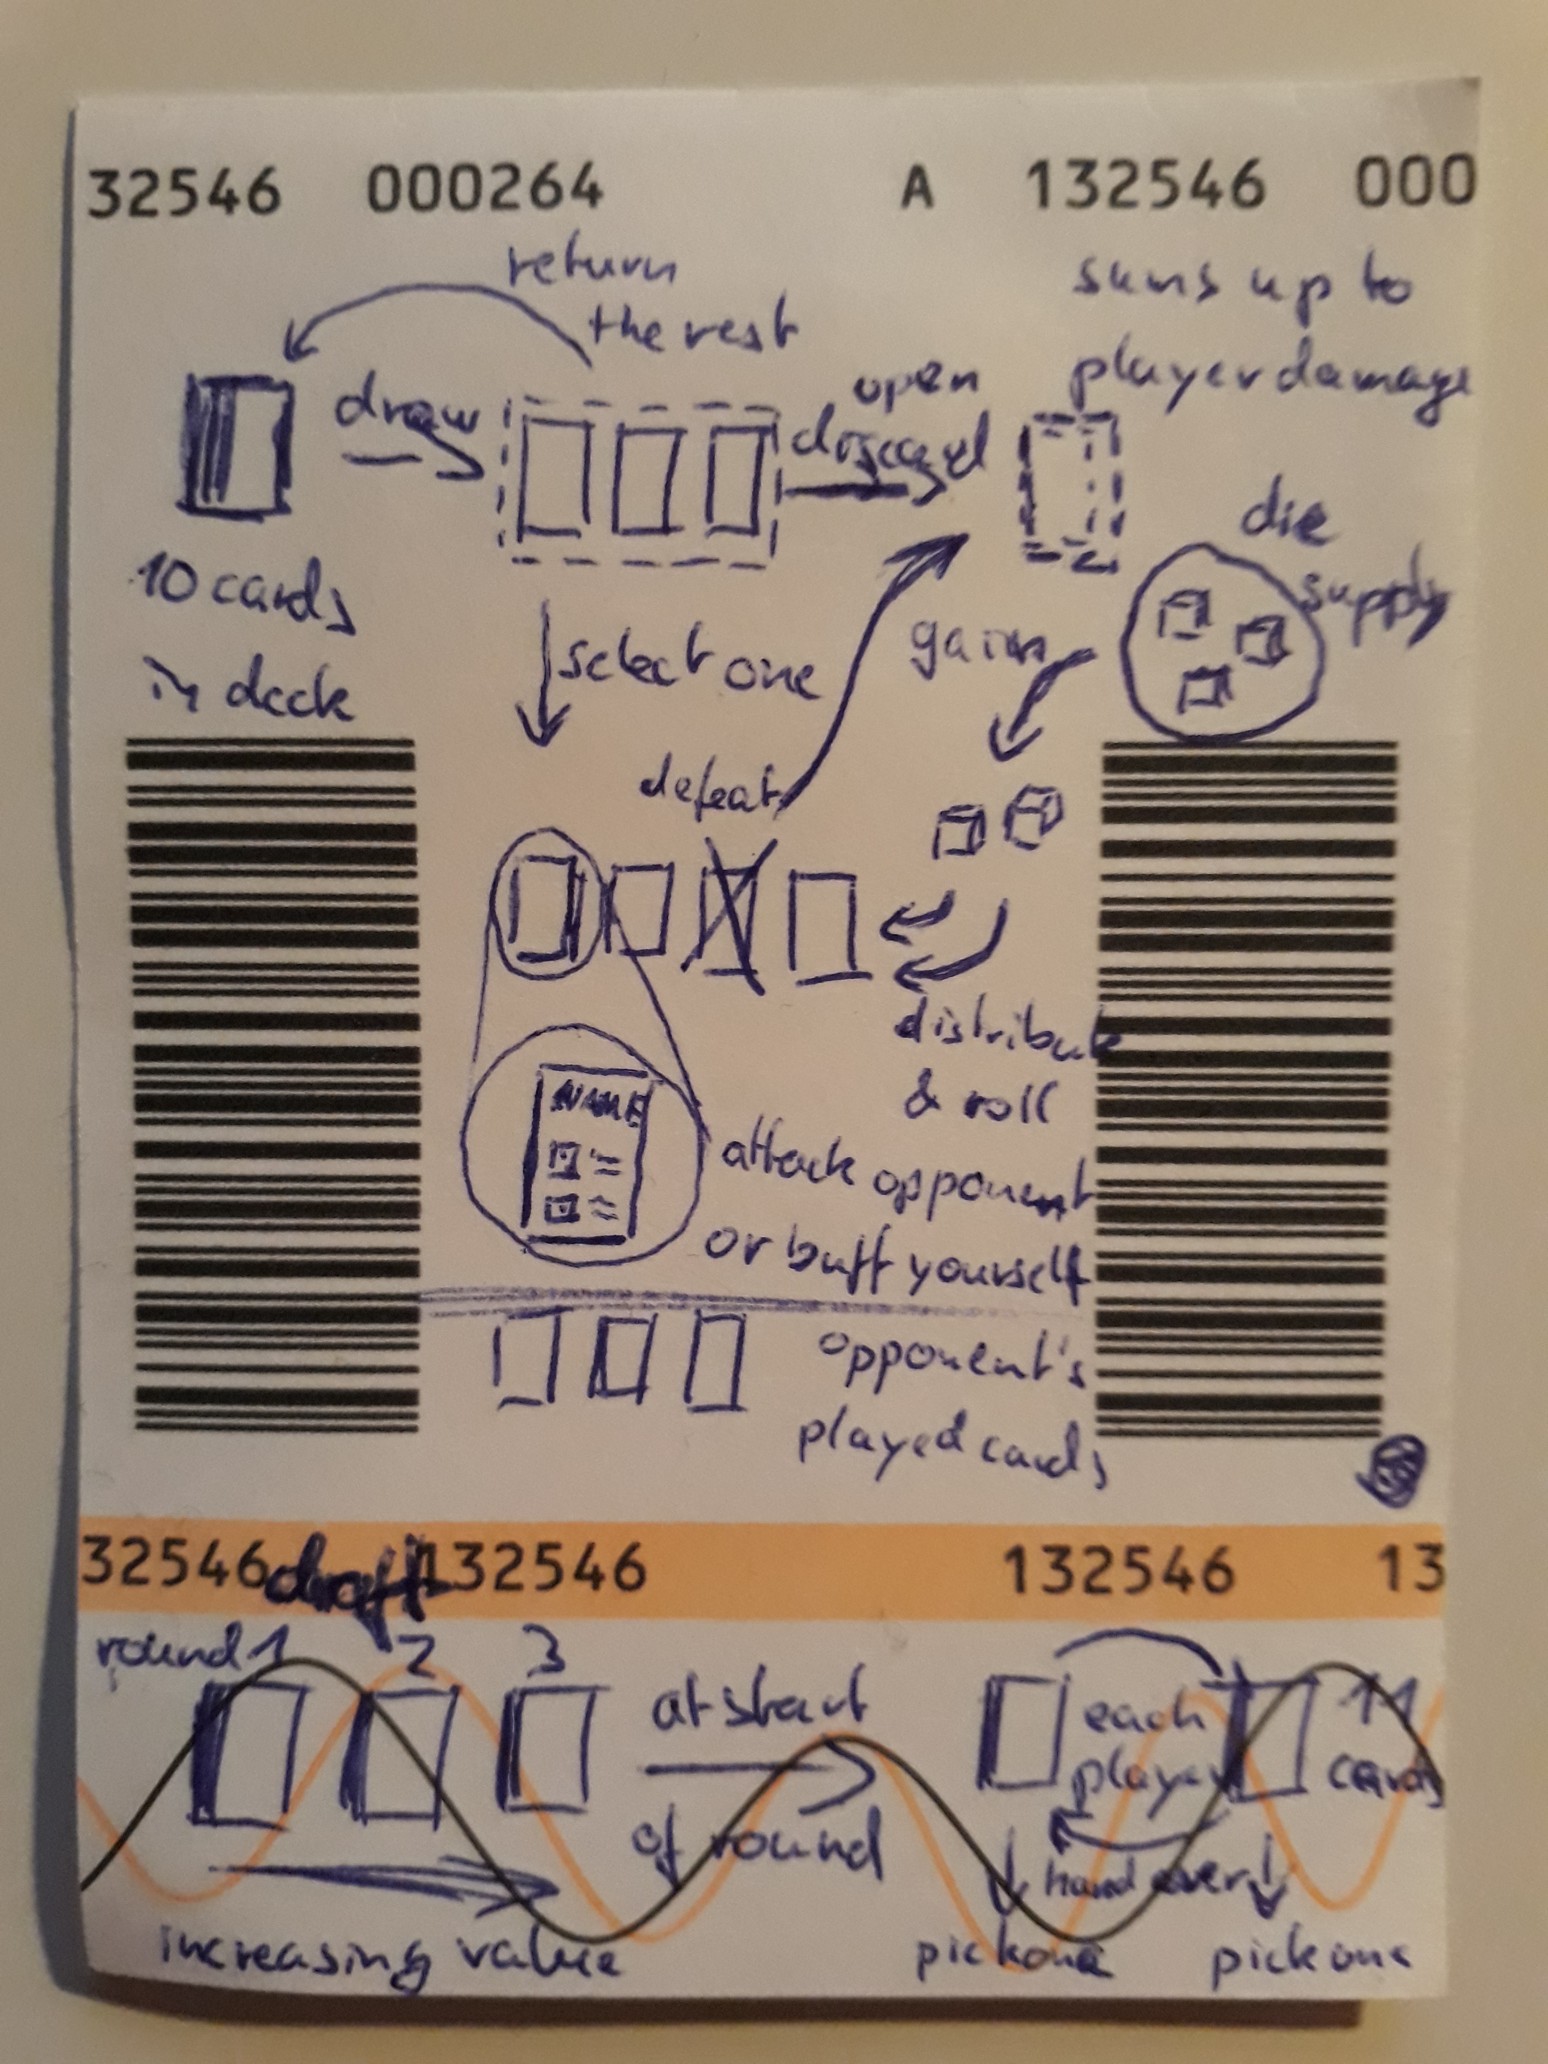 32546 000264 A 132546 000
return
the rest
sums up to
player damage
draw
open
discard
die
supply
10 cards
in deck
select one
gain
defeat
distribute
& roll
NAME
attack opponent
or buff yourself
opponent's
played cards
32546 draft 132546 132546 13
round 1 2 3
at start
of round
each
player
11
cards
hand over
increasing value
pick one
pick one